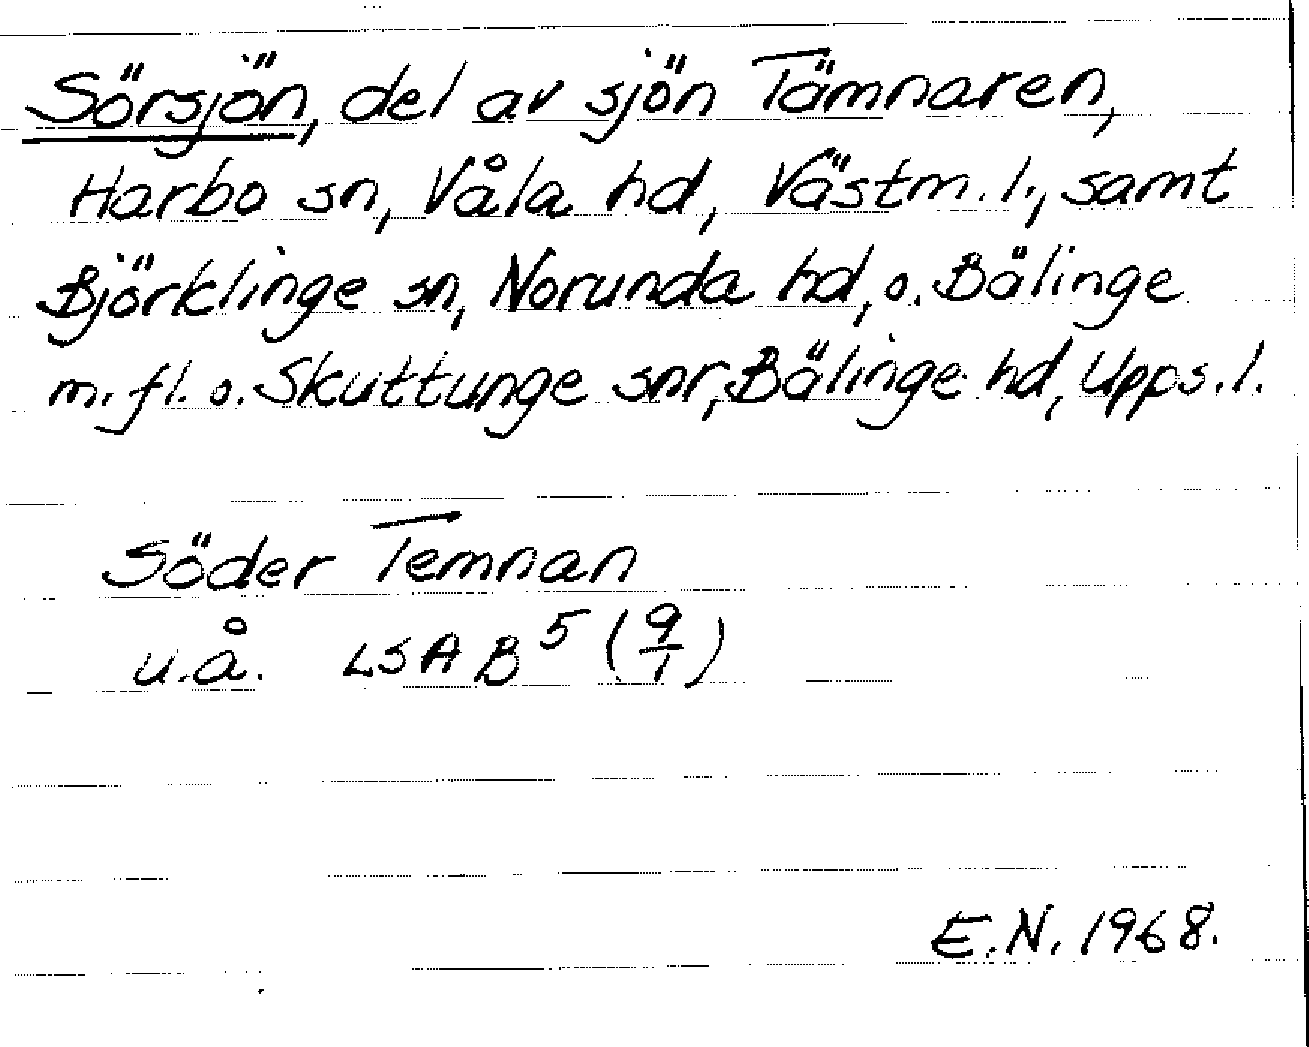 Sörsjön, del av sjön Tämnaren,
Harbo sn, Våla hd, Västm. l., samt
Björklinge sn, Norunda hd, o. Bälinge
m. fl. o. Skuttunge snr, Bälinge hd, Upps. l.
Söder Temnan
u.å. LSA B⁵ (9/1)
E.N. 1968.